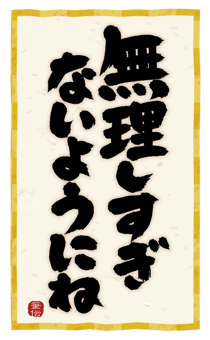 無理しすぎ
ないようにね